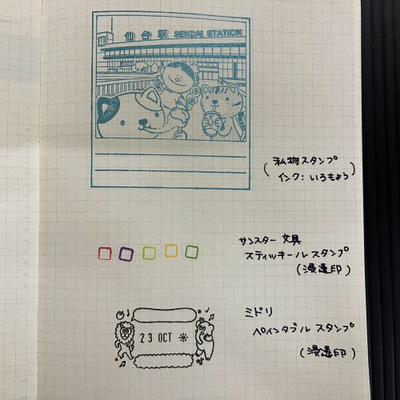 仙台駅 SENDAI STATION
(私物スタンプ
インク:いろもよう)
サンスター文具
スティッキールスタンプ
(浸透印)
23 OCT
ミドリ
ペインタブルスタンプ
(浸透印)